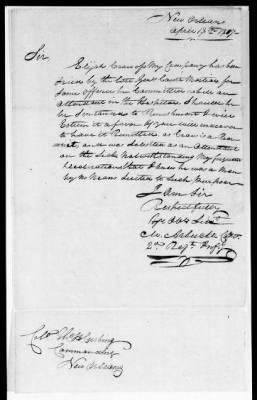 New Orleans
April 17th
Sir,
Elijah of My Company has been
tried by the late Genl Court Martial for
Some offence he Committed whilst an
Attendant in the Hospital Should he
be Sentenced to Punishment I will
Esteem it a favor if you will
to have it Remitted as is a
and was Selected as an Attendant
on the Sick Notwithstanding My frequent
that he was a Man
by no Means Suited to Such Purpose
I am Sir
Respectfully
Your Obt Servt
M. Arbuckle Capt
2nd Regt Infy
Col Cushing
Commanding
New Orleans